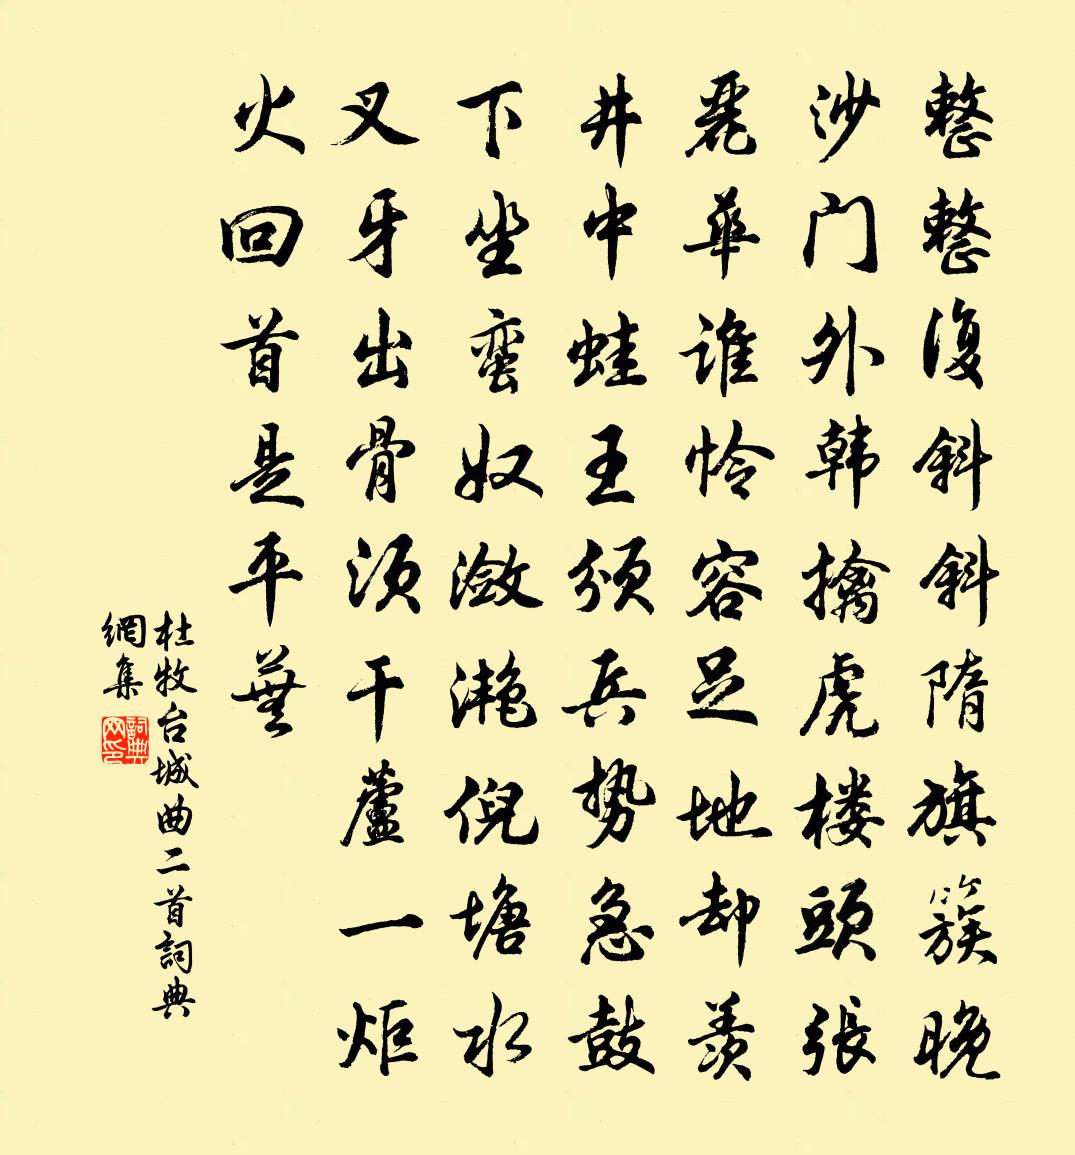 整整復斜斜隋旗簇晚
沙门外韩擒虎楼頭張
麗華谁怜容足地却羡
井中蛙王颁兵势急鼓
下坐蛮奴潋滟倪塘水
叉牙出骨须干蘆一炬
火回首是平蕪
杜牧台城曲二首詞典
網集
詞典网印